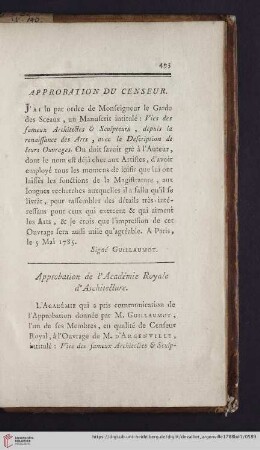 495
APPROBATION DU CENSEUR.
J'AI lu par ordre de Monseigneur le Garde
des Sceaux, un Manuscrit intitulé : Vies des
fameux Architectes & Sculpteurs, depuis la
renaissance des Arts, avec la Description de
leurs Ouvrages. On doit savoir gré à l'Auteur,
dont le nom est déjà cher aux Artistes, d'avoir
employé tous les momens de loisir que lui ont
laissés les fonctions de la Magistrature, aux
longues recherches auxquelles il a fallu qu'il se
livrât, pour rassembler des détails très-inté-
ressans pour ceux qui exercent & qui aiment
les Arts, & je crois que l'impression de cet
Ouvrage sera aussi utile qu'agréable. A Paris,
le 5 Mai 1785.
Signé GUILLAUMOT.
Approbation de l'Académie Royale
d'Architecture.
L'ACADÉMIE qui a pris communication de
l'Approbation donnée par M. GUILLAUMOT,
l'un de ses Membres, en qualité de Censeur
Royal, à l'Ouvrage de M. D'ARGENVILLE,
intitulé : Vies des fameux Architectes & Sculp-